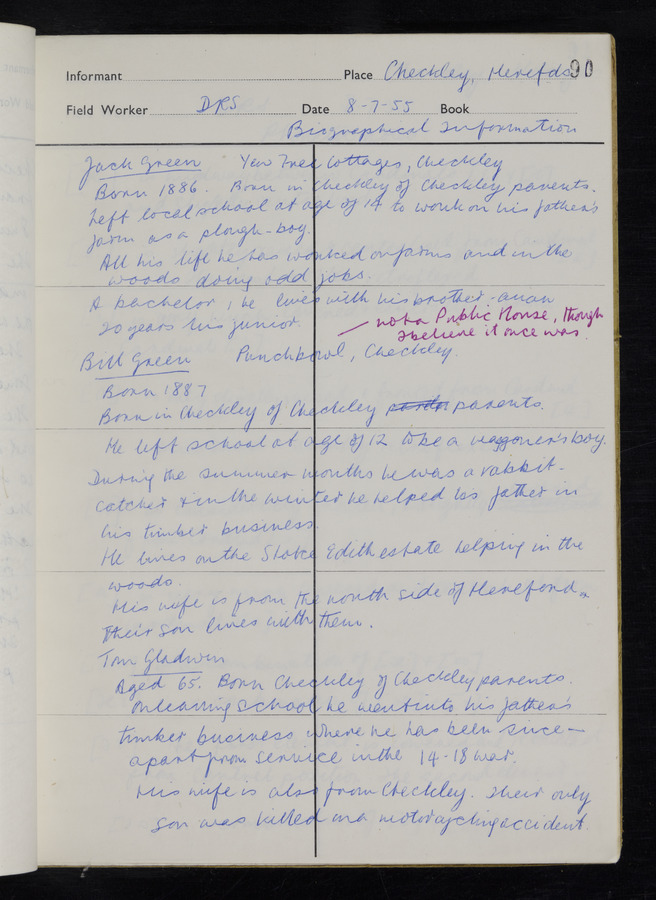 Informant Place Checkley, Herefds 90
Field Worker DRS Date 8-7-55 Book
Biographical Information
Jack Green Yew Tree Cottages, Checkley
Born 1886. Born in Checkley of Checkley parents.
Left local school at age of 14 to work on his father's
farm as a plough-boy.
All his life he has worked on farms and in the
woods doing odd jobs.
A bachelor, he lives with his brother - a man
20 years his junior.
not a Public House, though
I believe it once was.
Bill Green Punchbowl, Checkley.
Born 1887
Born in Checkley of Checkley parents.
He left school at age of 12 to be a waggoner's boy.
During the summer months he was a rabbit-
catcher & in the winter he helped his father in
his timber business.
He lives on the Stoke Edith estate helping in the
woods.
His wife is from the north side of Hereford.
Their son lives with them.
Tom Gladwin
Aged 65. Born Checkley of Checkley parents.
On leaving school he went into his father's
timber business where he has been since -
apart from service in the 14-18 war.
His wife is also from Checkley. Their only
son was killed in a motorcycling accident.